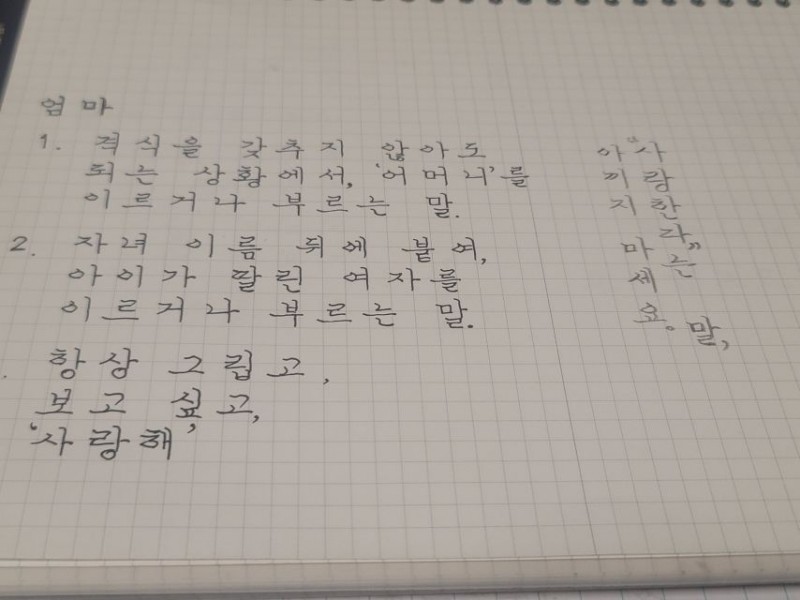 엄마
1. 격식을 갖추지 않아도
되는 상황에서, '어머니'를
이르거나 부르는 말.
2. 자녀 이름 뒤에 붙여,
아이가 딸린 여자를
이르거나 부르는 말.
. 항상 그립고,
보고 싶고,
'사랑해'
"사랑한다"는 말,
아끼지 마세요.